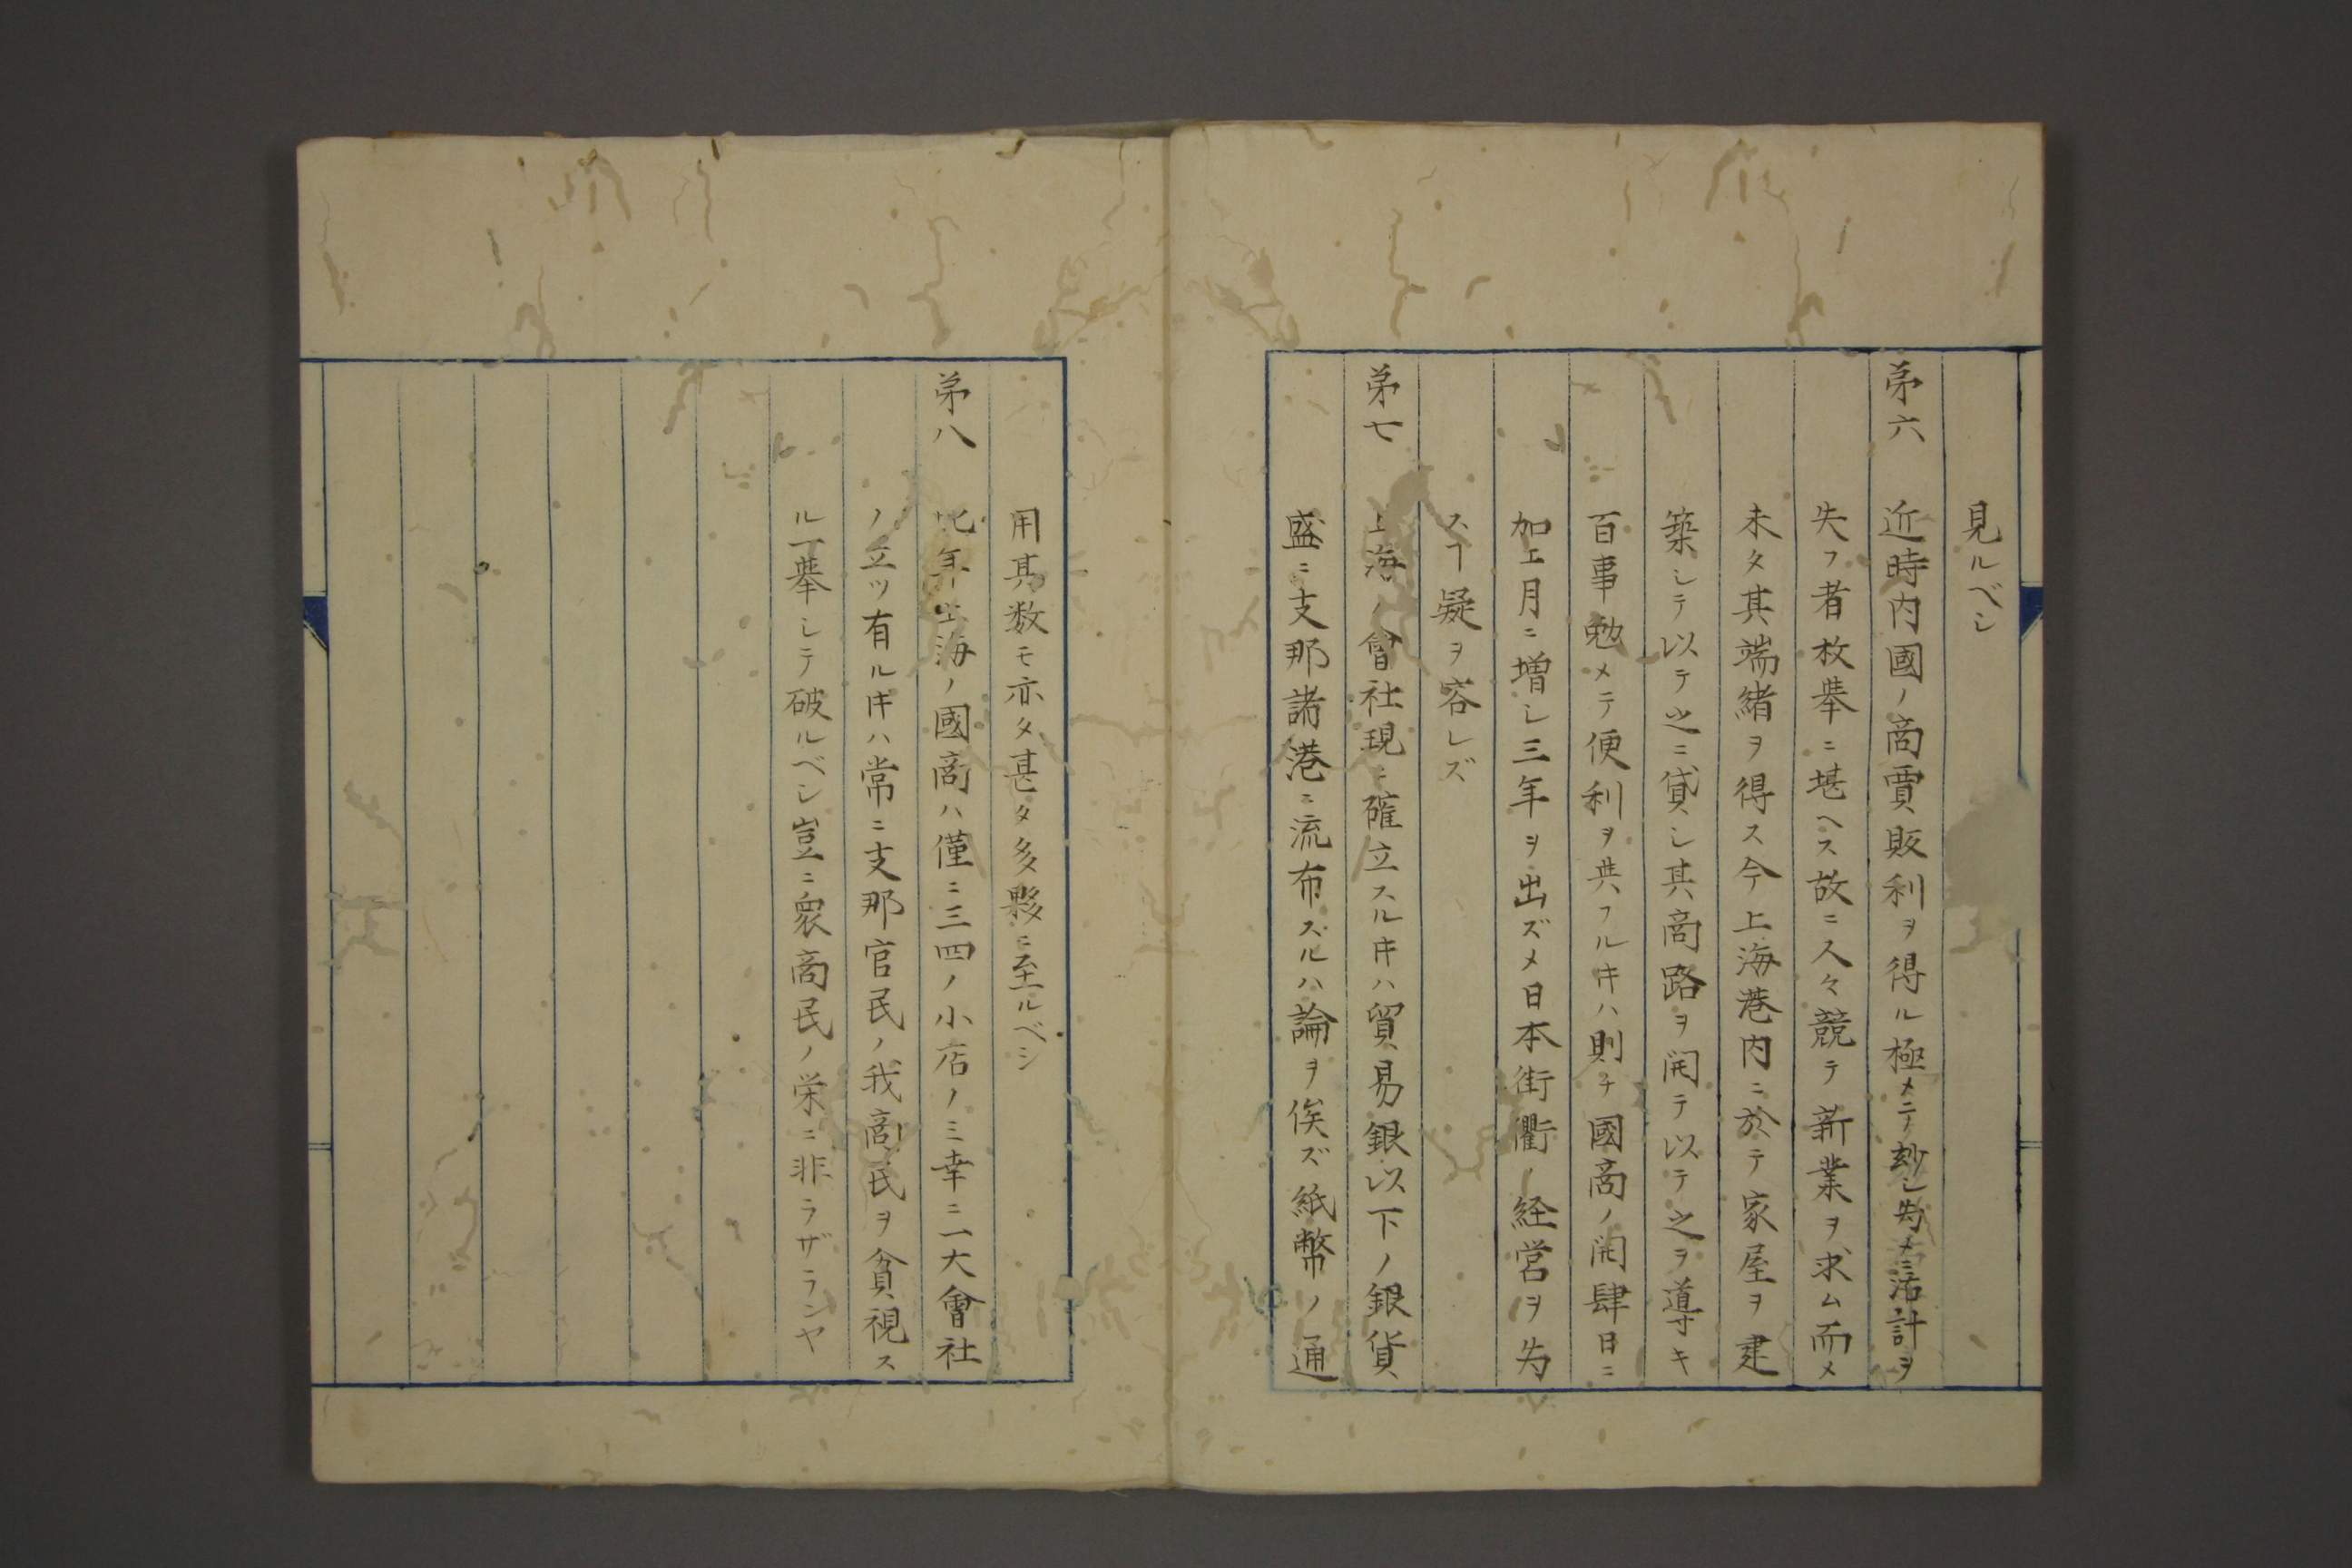 見ルベシ
第六 近時内國ノ商賈販利ヲ得ル極メテ尠シ為メニ活計ヲ
失フ者枚挙ニ堪ヘス故ニ人々競テ新業ヲ求ム而メ
未タ其端緒ヲ得ス今上海港内ニ於テ家屋ヲ建
築シテ以テ之ニ貸シ其商路ヲ開テ以テ之ヲ導キ
百事勉メテ便利ヲ共フルキハ則チ國商ノ開肆日ニ
加エ月ニ増シ三年ヲ出ズメ日本街衢ノ経営ヲ為
スヿ疑ヲ容レズ
第七 上海ノ會社現ニ確立スルキハ貿易銀以下ノ銀貨
盛ニ支那諸港ニ流布スルハ論ヲ俟ズ紙幣ノ通
用其数モ亦タ甚タ多夥ニ至ルベシ
第八 比年上海ノ國商ハ僅ニ三四ノ小店ノミ幸ニ一大會社
ノ立ツ有ルキハ常ニ支那官民ノ我商民ヲ貧視ス
ル一挙シテ破ルベシ豈ニ衆商民ノ栄ニ非ラザランヤ